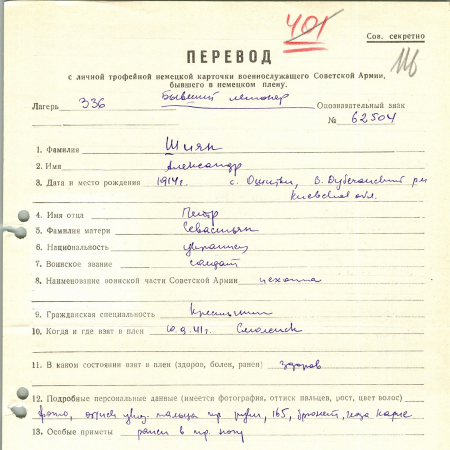 401
Сов. секретно
116
ПЕРЕВОД
с личной трофейной немецкой карточки военнослужащего Советской Армии,
бывшего в немецком плену.
Лагерь 336 Бывший легионер Опознавательный знак
№ 62504
1. Фамилия Шиян
2. Имя Александр
3. Дата и место рождения 1914г. с. Ошитки, В. Дубечанский р-н
Киевская обл.
4. Имя отца Петр
5. Фамилия матери Севастьян
6. Национальность украинец
7. Воинское звание солдат
8. Наименование воинской части Советской Армии пехота
9. Гражданская специальность Крестьянин
10. Когда и где взят в плен 10.9.41г. Смоленск
11. В каком состоянии взят в плен (здоров, болен, ранен) здоров
12. Подробные персональные данные (имеется фотография, оттиск пальцев, рост, цвет волос)
фото, оттиск указ. пальца пр. руки, 165, брюнет, глаза карие
13. Особые приметы ранен в пр. ногу